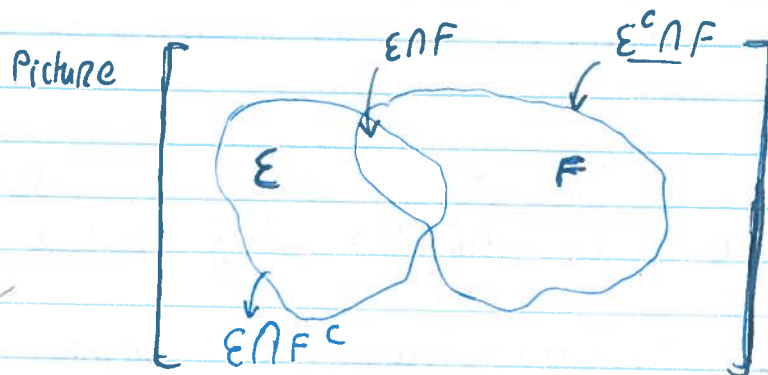 Picture
E∩F
E^c∩F
E
F
E∩F^c